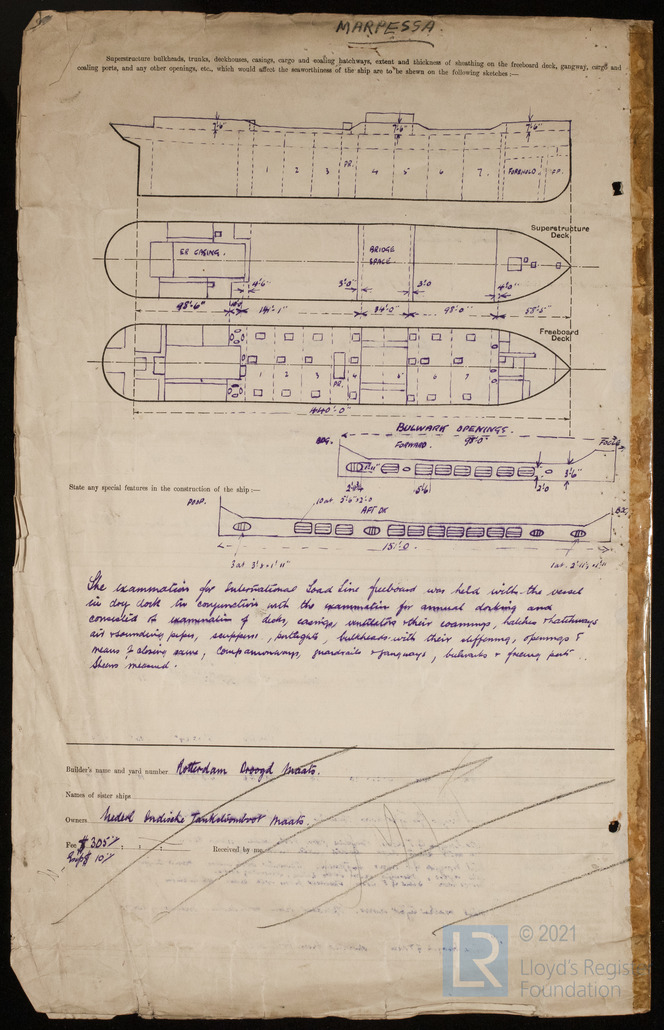 MARPESSA.
Superstructure bulkheads, trunks, deckhouses, casings, cargo and coaling hatchways, extent and thickness of sheathing on the freeboard deck, gangway, cargo and
coaling ports, and any other openings, etc., which would affect the seaworthiness of the ship are to be shewn on the following sketches:—
7'-6" 7'-6" 7'-6"
1 2 3 PR. 4 5 6 7. FOREHOLD F.P.
Superstructure
Deck
ER CASING.
BRIDGE
SPACE.
4'-6" 3'-0" 3'-0 4'-0"
98'-6" 141'-1" 34'-0" 98'-0" 58'-5"
Freeboard
Deck
1 2 3 PR. 4 5 6 7
440'-0"
BULWARK OPENINGS.
BDG. FORWARD. 98'-0" FOCLE
3'-6"
2'-0
State any special features in the construction of the ship:—
POOP. 10 at. 5'-6" x 2'-0 AFT DK
151'-0
The examination for International Load Line freeboard was held with the vessel
in dry dock in conjunction with the examination for annual docking and
consisted of examination of decks, casings, ventilators & their coamings, hatches & hatchways
air & sounding pipes, scuppers, portlights, bulkheads with their stiffening, openings &
means of closing same, Companionways, guardrails & gangways, bulwarks & freeing ports.
Sheers measured.
Builder's name and yard number Rotterdam Droogd Maats.
Names of sister ships
Owners Nederl Indische Tankstoomboot Maats.
Fee $ 305
$ 10
Received by me
© 2021
LR
Lloyd's Register
Foundation